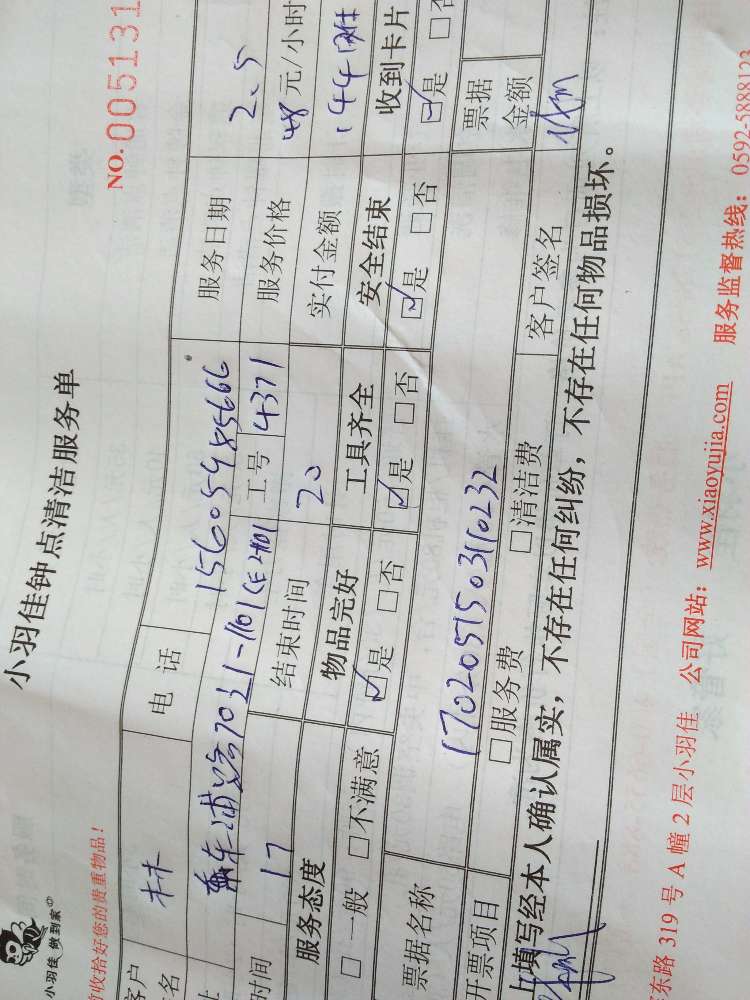 小羽佳 做到家
小羽佳钟点清洁服务单
NO.005131
前收拾好您的贵重物品！
客户 林 电 话 15605985666 服务日期 2.5
名
1101 工号 4371 服务价格 48 元/小时
时间 17 结束时间 20 实付金额 144
服务态度 物品完好 工具齐全 安全结束 收到卡片
□ 一般 □不满意 ☑是 □否 ☑是 □否 ☑是 □否 ☑是 □否
票据名称 1702051503110232 票据
金额
开票项目 □服务费 □清洁费 客户签名
上填写经本人确认属实，不存在任何纠纷，不存在任何物品损坏。
东路 319 号 A 幢 2 层小羽佳 公司网站：www.xiaoyujia.com 服务监督热线：0592-5888123